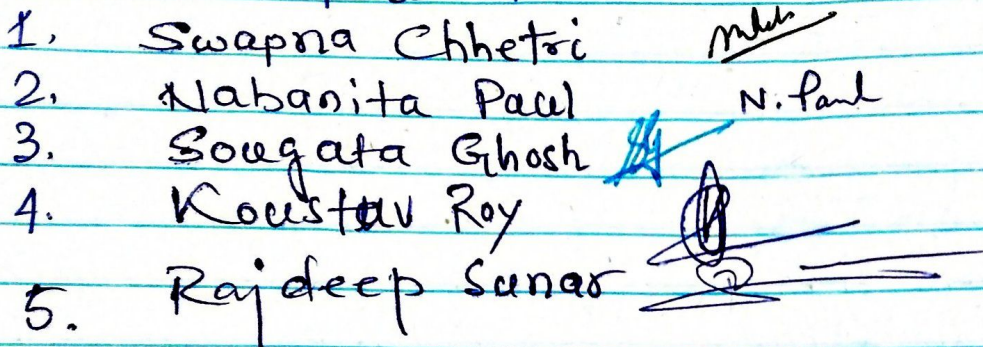 1. Swapna Chhetri
2. Nabanita Paul N. Paul
3. Sougata Ghosh
4. Koustav Roy
5. Rajdeep Sunar